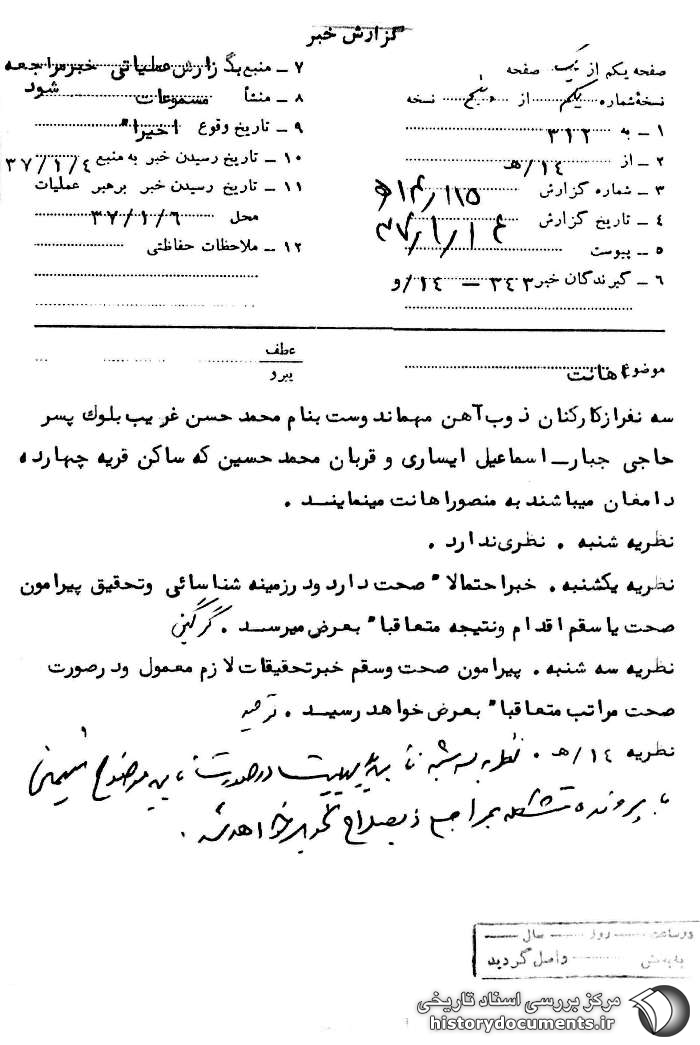 گزارش خبر
صفحه یکم از یک صفحه
نسخهٔ شماره یکم از پنج نسخه
۱ ـ به ۳۱۲
۲ ـ از ۱۴/ه‍
۳ ـ شماره گزارش
۴ ـ تاریخ گزارش
۵ ـ پیوست
۶ ـ گیرندگان خبر ۳۴۳ ـ ۱۴/و
۷ ـ منبع بگزارش عملیاتی خبر مراجعه شود
۸ ـ منشأ مسموعات
۹ ـ تاریخ وقوع اخیراً
۱۰ ـ تاریخ رسیدن خبر به منبع ۳۷/۱/۴
۱۱ ـ تاریخ رسیدن خبر برهبر عملیات
محل ۳۷/۱/۶
۱۲ ـ ملاحظات حفاظتی
موضوع اهانت
عطف
پیرو
سه نفر از کارکنان ذوب آهن مهماندوست بنام محمد حسن غریب بلوك پسر
حاجی جبار ـ اسماعیل ایساری و قربان محمد حسین که ساکن قریه چهارده
دامغان میباشند به منصور اهانت مینمایند .
نظریه شنبه . نظری ندارد .
نظریه یکشنبه . خبر احتمالاً صحت دارد و در زمینه شناسائی وتحقیق پیرامون
صحت یا سقم اقدام ونتیجه متعاقباً بعرض میرسد . گرگینی
نظریه سه شنبه . پیرامون صحت وسقم خبر تحقیقات لازم معمول ودرصورت
صحت مراتب متعاقباً بعرض خواهد رسید .
نظریه ۱۴/ه‍ . نظریه سه شنبه تأیید درصورت تأیید موضوع
با پرونده متشکله بمراجع ذیصلاح تحویل خواهد شد .
در ساعت روز سال
به بخش واصل گردید
مرکز بررسی اسناد تاریخی
historydocuments.ir